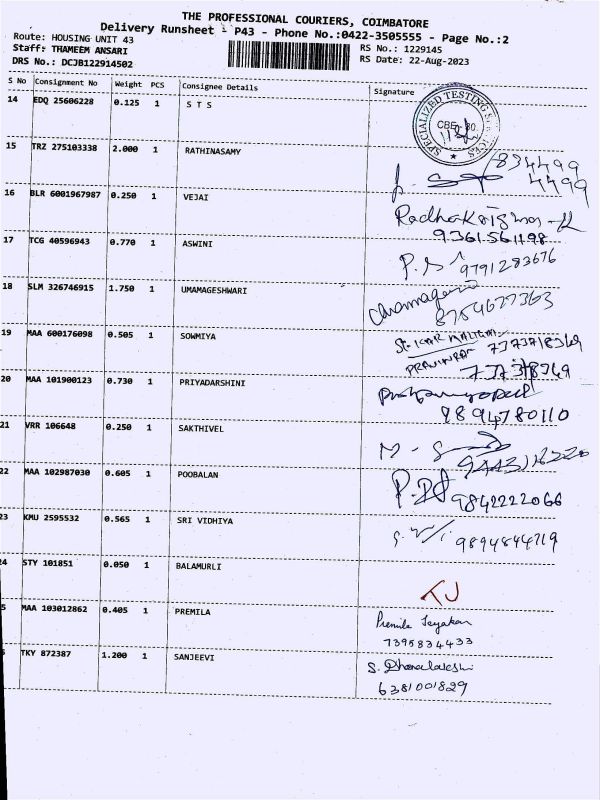 THE PROFESSIONAL COURIERS, COIMBATORE
Delivery Runsheet - P43 - Phone No.:0422-3505555 - Page No.:2
Route: HOUSING UNIT 43
RS No.: 1229145
Staff: THAMEEM ANSARI
RS Date: 22-Aug-2023
DRS No.: DCJB122914502
S No Consignment No Weight PCS Consignee Details Signature
14 EDQ 25606228 0.125 1 S T S
SPECIALIZED TESTING SERVICES
15 TRZ 275103338 2.000 1 RATHINASAMY
834499
4499
16 BLR 6001967987 0.250 1 VEJAI
9361561198
17 TCG 40596943 0.770 1 ASWINI
9791283676
18 SLM 326746915 1.750 1 UMAMAGESHWARI
8754677363
19 MAA 600176098 0.505 1 SOWMIYA
7373718369
20 MAA 101900123 0.730 1 PRIYADARSHINI
9894780110
21 VRR 106648 0.250 1 SAKTHIVEL
22 MAA 102987030 0.605 1 POOBALAN
9842222066
23 KMU 2595532 0.565 1 SRI VIDHIYA
9894844719
24 STY 101851 0.050 1 BALAMURLI
TJ
5 MAA 103012862 0.405 1 PREMILA
Premila Jeyakar
7395834433
TKY 872387 1.200 1 SANJEEVI
S. Dhanalakshmi
6381001829